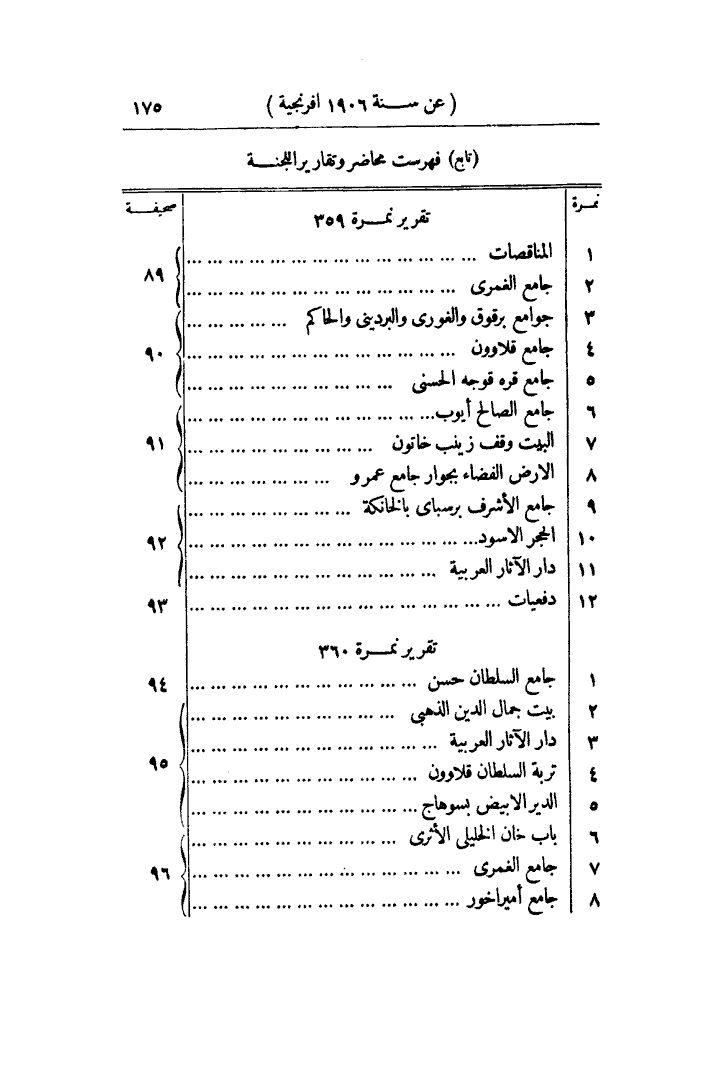 (عن سنة ١٩٠٦ افرنجية) ١٧٥
(تابع) فهرست محاضر وتقارير اللجنة
نمرة صحيفة
تقرير نمرة ٣٥٩
١ المناقصات ... ٨٩
٢ جامع الغمرى ...
٣ جوامع برقوق والغورى والبردينى والحاكم ...
٤ جامع قلاوون ... ٩٠
٥ جامع قره قوجه الحسنى ...
٦ جامع الصالح أيوب ...
٧ البيت وقف زينب خاتون ... ٩١
٨ الارض الفضاء بجوار جامع عمرو ...
٩ جامع الأشرف برسباى بالخانكة ...
١٠ الحجر الاسود ... ٩٢
١١ دار الآثار العربية ...
١٢ دفعيات ... ٩٣
تقرير نمرة ٣٦٠
١ جامع السلطان حسن ... ٩٤
٢ بيت جمال الدين الذهبى ...
٣ دار الآثار العربية ... ٩٥
٤ تربة السلطان قلاوون ...
٥ الدير الابيض بسوهاج ...
٦ باب خان الخليلى الأثرى ...
٧ جامع الغمرى ... ٩٦
٨ جامع أميراخور ...